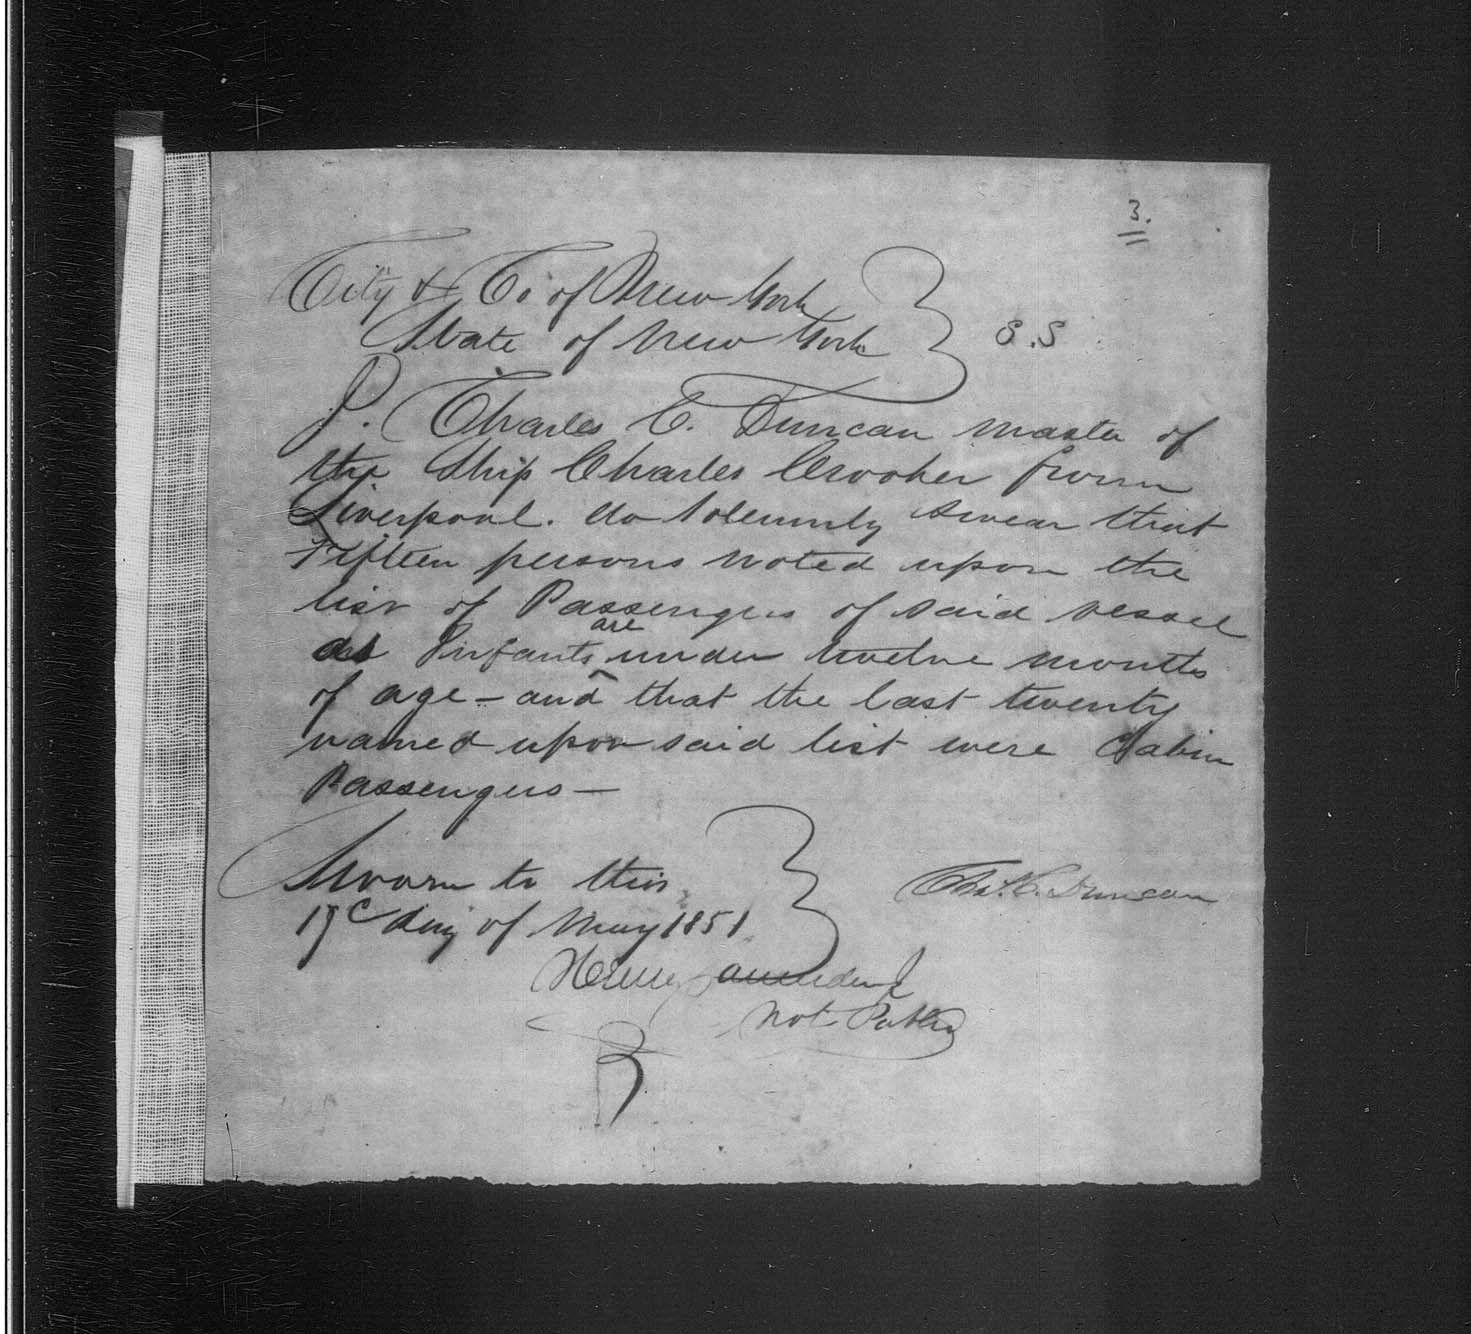 3.
City & Co of New York
State of New York } S.S
I. Charles C. Duncan master of
the Ship Charles Crooker from
Liverpool. do Solemnly swear that
Fifteen persons noted upon the
list of Passengers of said vessel
as Infants ^are under twelve months
of age - and that the last twenty
named upon said list were Cabin
Passengers -
Sworn to this
day of May 1851
Chas. C. Duncan
Henry
Not Public